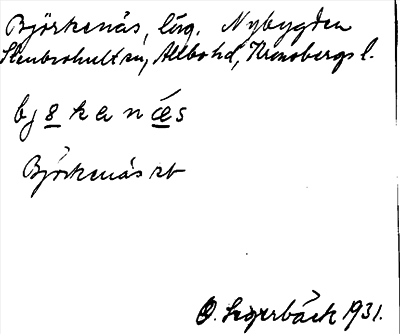 Björkenås, läg. Nybygden
Stenbrohult sn, Allbo hd, Kronobergs l.
bj8kenås
Björkenås rt
O. Segerbäck 1931.